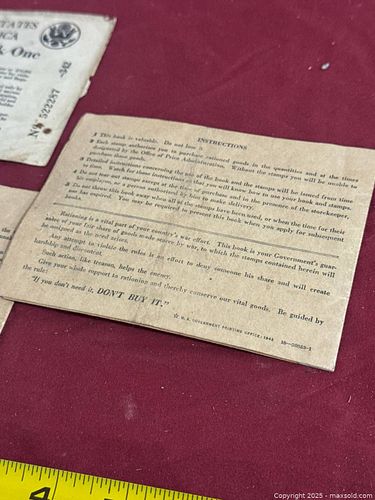 STATES
ICA
k One
No 522287 -342
INSTRUCTIONS
1 This book is valuable. Do not lose it.
2 Each stamp authorizes you to purchase rationed goods in the quantities and at the times
designated by the Office of Price Administration. Without the stamps you will be unable to
purchase those goods.
3 Detailed instructions concerning the use of the book and the stamps will be issued from time
to time. Watch for those instructions so that you will know how to use your book and stamps.
4 Do not tear out stamps except at the time of purchase and in the presence of the storekeeper,
his employee, or a person authorized by him to make delivery.
5 Do not throw this book away when all of the stamps have been used, or when the time for their
use has expired. You may be required to present this book when you apply for subsequent
books.
Rationing is a vital part of your country's war effort. This book is your Government's guar-
antee of your fair share of goods made scarce by war, to which the stamps contained herein will
be assigned as the need arises.
Any attempt to violate the rules is an effort to deny someone his share and will create
hardship and discontent.
Such action, like treason, helps the enemy.
Give your whole support to rationing and thereby conserve our vital goods. Be guided by
the rule:
"If you don't need it, DON'T BUY IT."
☆ U. S. GOVERNMENT PRINTING OFFICE: 1942
4
Copyright 2025 - maxsold.com